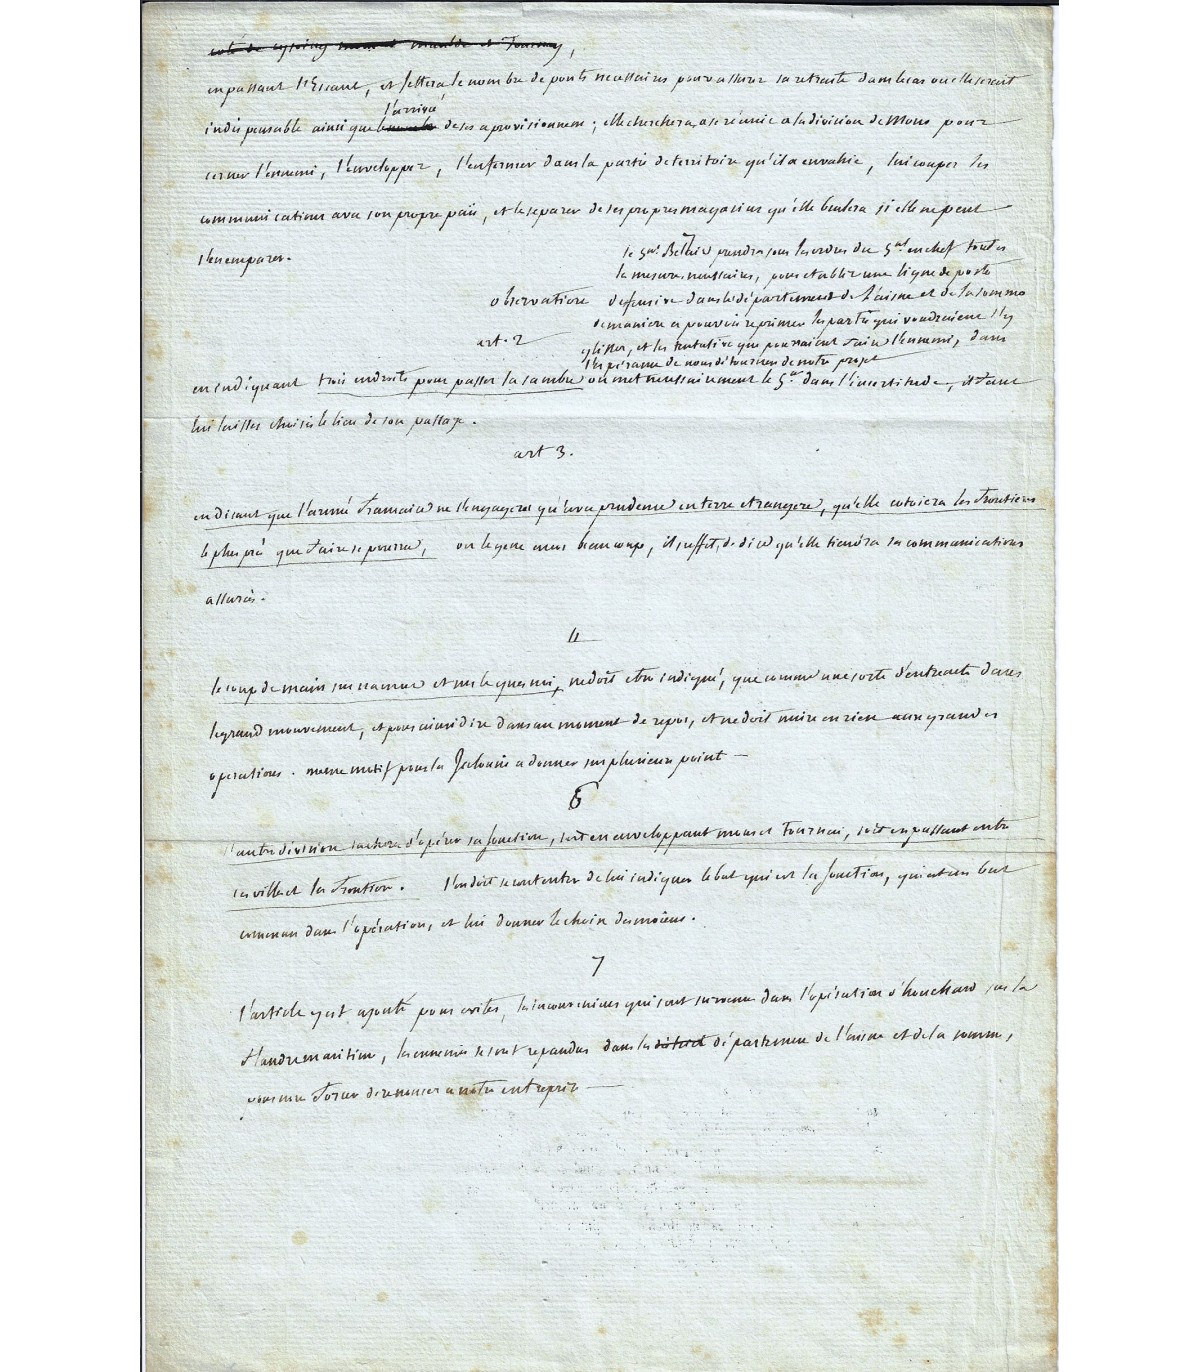 coté de cysoing
en passant l'Escaut, et jettera le nombre de ponts necessaires pour assurer sa retraite dans le cas ou elle seroit
l'arrivé
indispensable ainsi que de ses aprovisionnem; elle cherchera a se réunir a la division de Mons pour
cerner l'ennemi, l'envelopper, l'enfermer dans la partie de territoire qu'il a envahie, lui couper les
communications avec son propre païs, et le separer de ses propres magasins qu'elle brulera si elle ne peut
s'en emparer.
le gal. Bellair prendra sous les ordres du gal en chef toutes
les mesures necessaires, pour etablir une ligne de poste
observations defensive dans le département de l'aisne et de la somme
de maniere a pouvoir reprimer les partis qui voudroient s'y
art. 2
glisser, et les tentatives que pourraient faire l'ennemi, dans
l'espérance de nous détourner de notre projet
en indiquant trois endroits pour passer la sambre on met necessairement le gal dans l'incertitude, il faut
lui laisser choisir le lieu de son passage.
art 3.
en disant que l'armée francaise ne s'engagera qu'avec prudence en terre etrangere, qu'elle cotoiera les frontieres
le plus prés que faire se pourra, on le gene mais beaucoup, il suffit de dire qu'elle tiendra ses communications
assurées.
4
le coup de main sur namur et sur le quesnoi, ne doit etre indiqué, que comme une sorte d'entreacte dans
le grand mouvement, et pour ainsi dire dans un moment de repos, et ne doit nuire en rien aux grandes
operations. meme motif pour la jalousie a donner sur plusieurs point —
6
l'autre division tachera d'opérer sa jonction, soit en enveloppant mons et Tournai, soit en passant entre
ces villes et la frontiere. l'on doit se contenter de lui indiquer le but qui est la jonction, qui est un but
commun dans l'opération, et lui donner le choix des moiens.
7
l'article 7 est ajouté pour eviter, les inconveniens qui sont survenus dans l'opération d'houchard sur la
flandre maritime, les ennemis se sont repandus dans les district département de l'aisne et de la somme,
pour nous forcer de renoncer a notre entreprise —